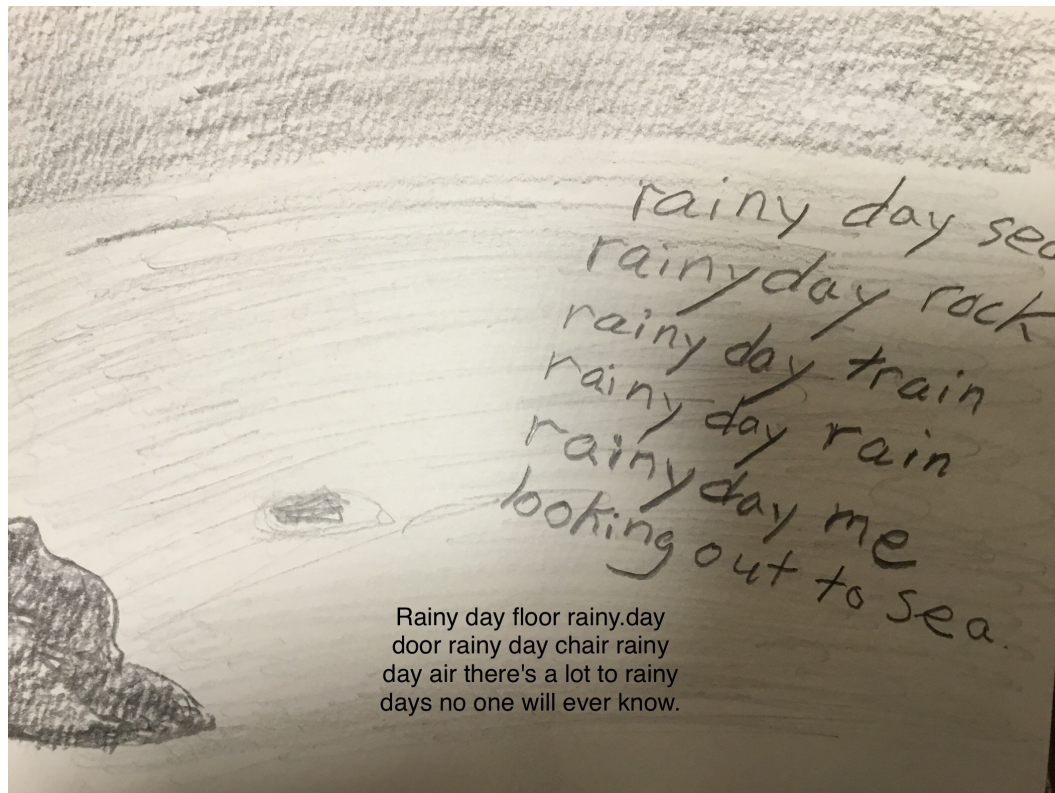 rainy day sea
rainyday rock
rainy day train
rainy day rain
rainyday me
looking out to sea.
Rainy day floor rainy.day
door rainy day chair rainy
day air there's a lot to rainy
days no one will ever know.